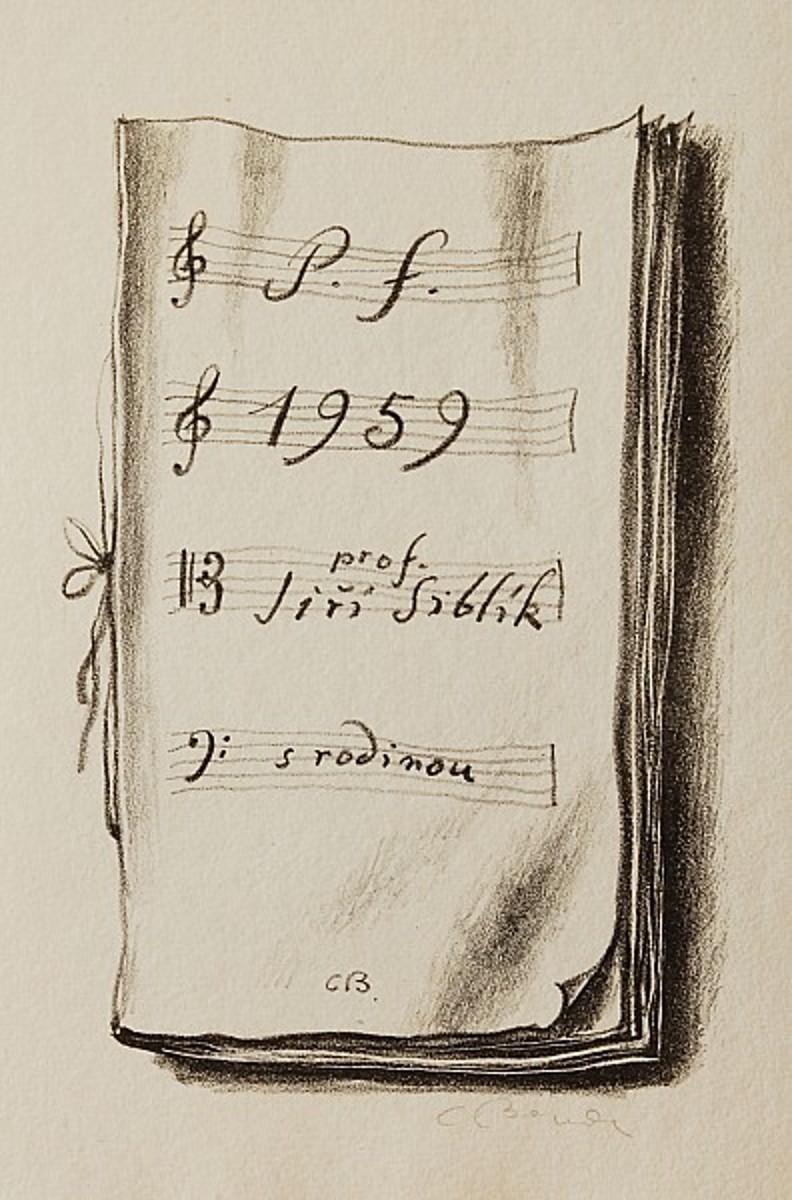 P. f.
1959
prof.
Jiří Siblík
s rodinou
CB.